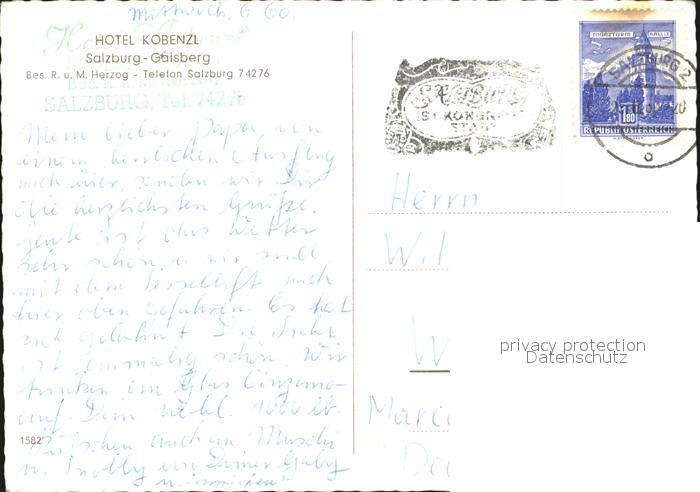 Mittwoch, 6 60.
HOTEL KOBENZL
Salzburg-Gaisberg
Bes. R. u. M. Herzog - Telefon Salzburg 74276
SALZBURG, Tel. 74276
Mein lieber Papa, von
einem herrlichen Ausflug
nach hier, senden wir Dir
die herzlichsten Grüße.
Heute ist das Wetter
sehr schön, u. wir sind
mit dem Sessellift nach
hier oben gefahren. Es hat
sich gelohnt. Die Sicht
ist einmalig schön. Wir
trinken ein Glas Cinzano
auf Dein Wohl. 1000 lb.
Küßchen auch an Muschi
u. von Deiner Gaby
1582
SALZBURG
IST KONGRESS
STADT
SALZBURG 2
a
1.80
REPUBLIK ÖSTERREICH
Herrn
Wil
W
privacy protection
Datenschutz